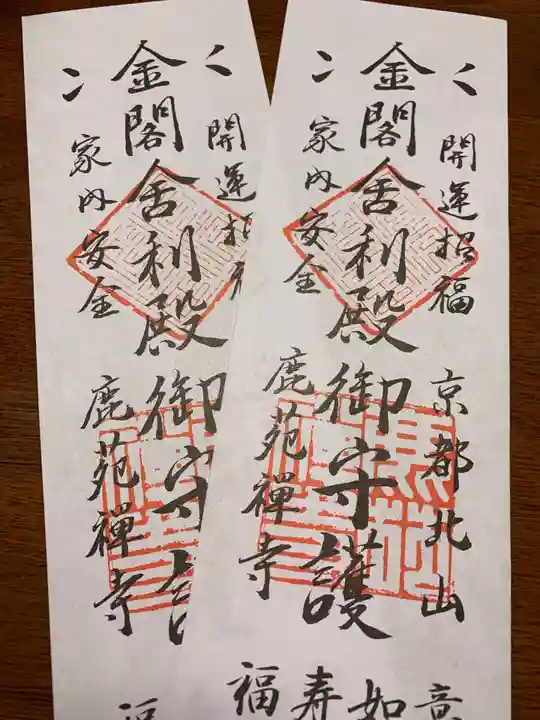 開運招福
京都北山
金閣舎利殿御守護
家内安全
鹿苑禅寺
如意
福寿
開運招福
金閣舎利殿御守護
家内安全
鹿苑禅寺
福